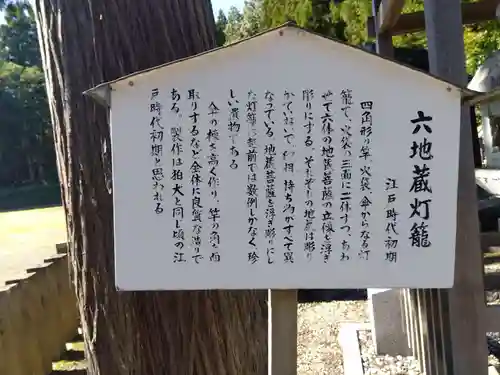 六地蔵灯籠
江戸時代初期
四角形の竿、火袋、傘からなる灯
籠で、火袋の三面に二体ずつ、あわ
せて六体の地蔵菩薩の立像を浮き
彫りにする。それぞれの地蔵は彫り
かでいねいで、印相、持ち物がすべて異
なっている。地蔵菩薩を浮き彫りにし
た灯籠は教前では数例しかなく、珍
しい遺物である
傘の棟を高く作り、竿の角を面
取りするなど全体に良質な造りで
ある。製作は狛犬と同じ頃の江
戸時代初期と思われる